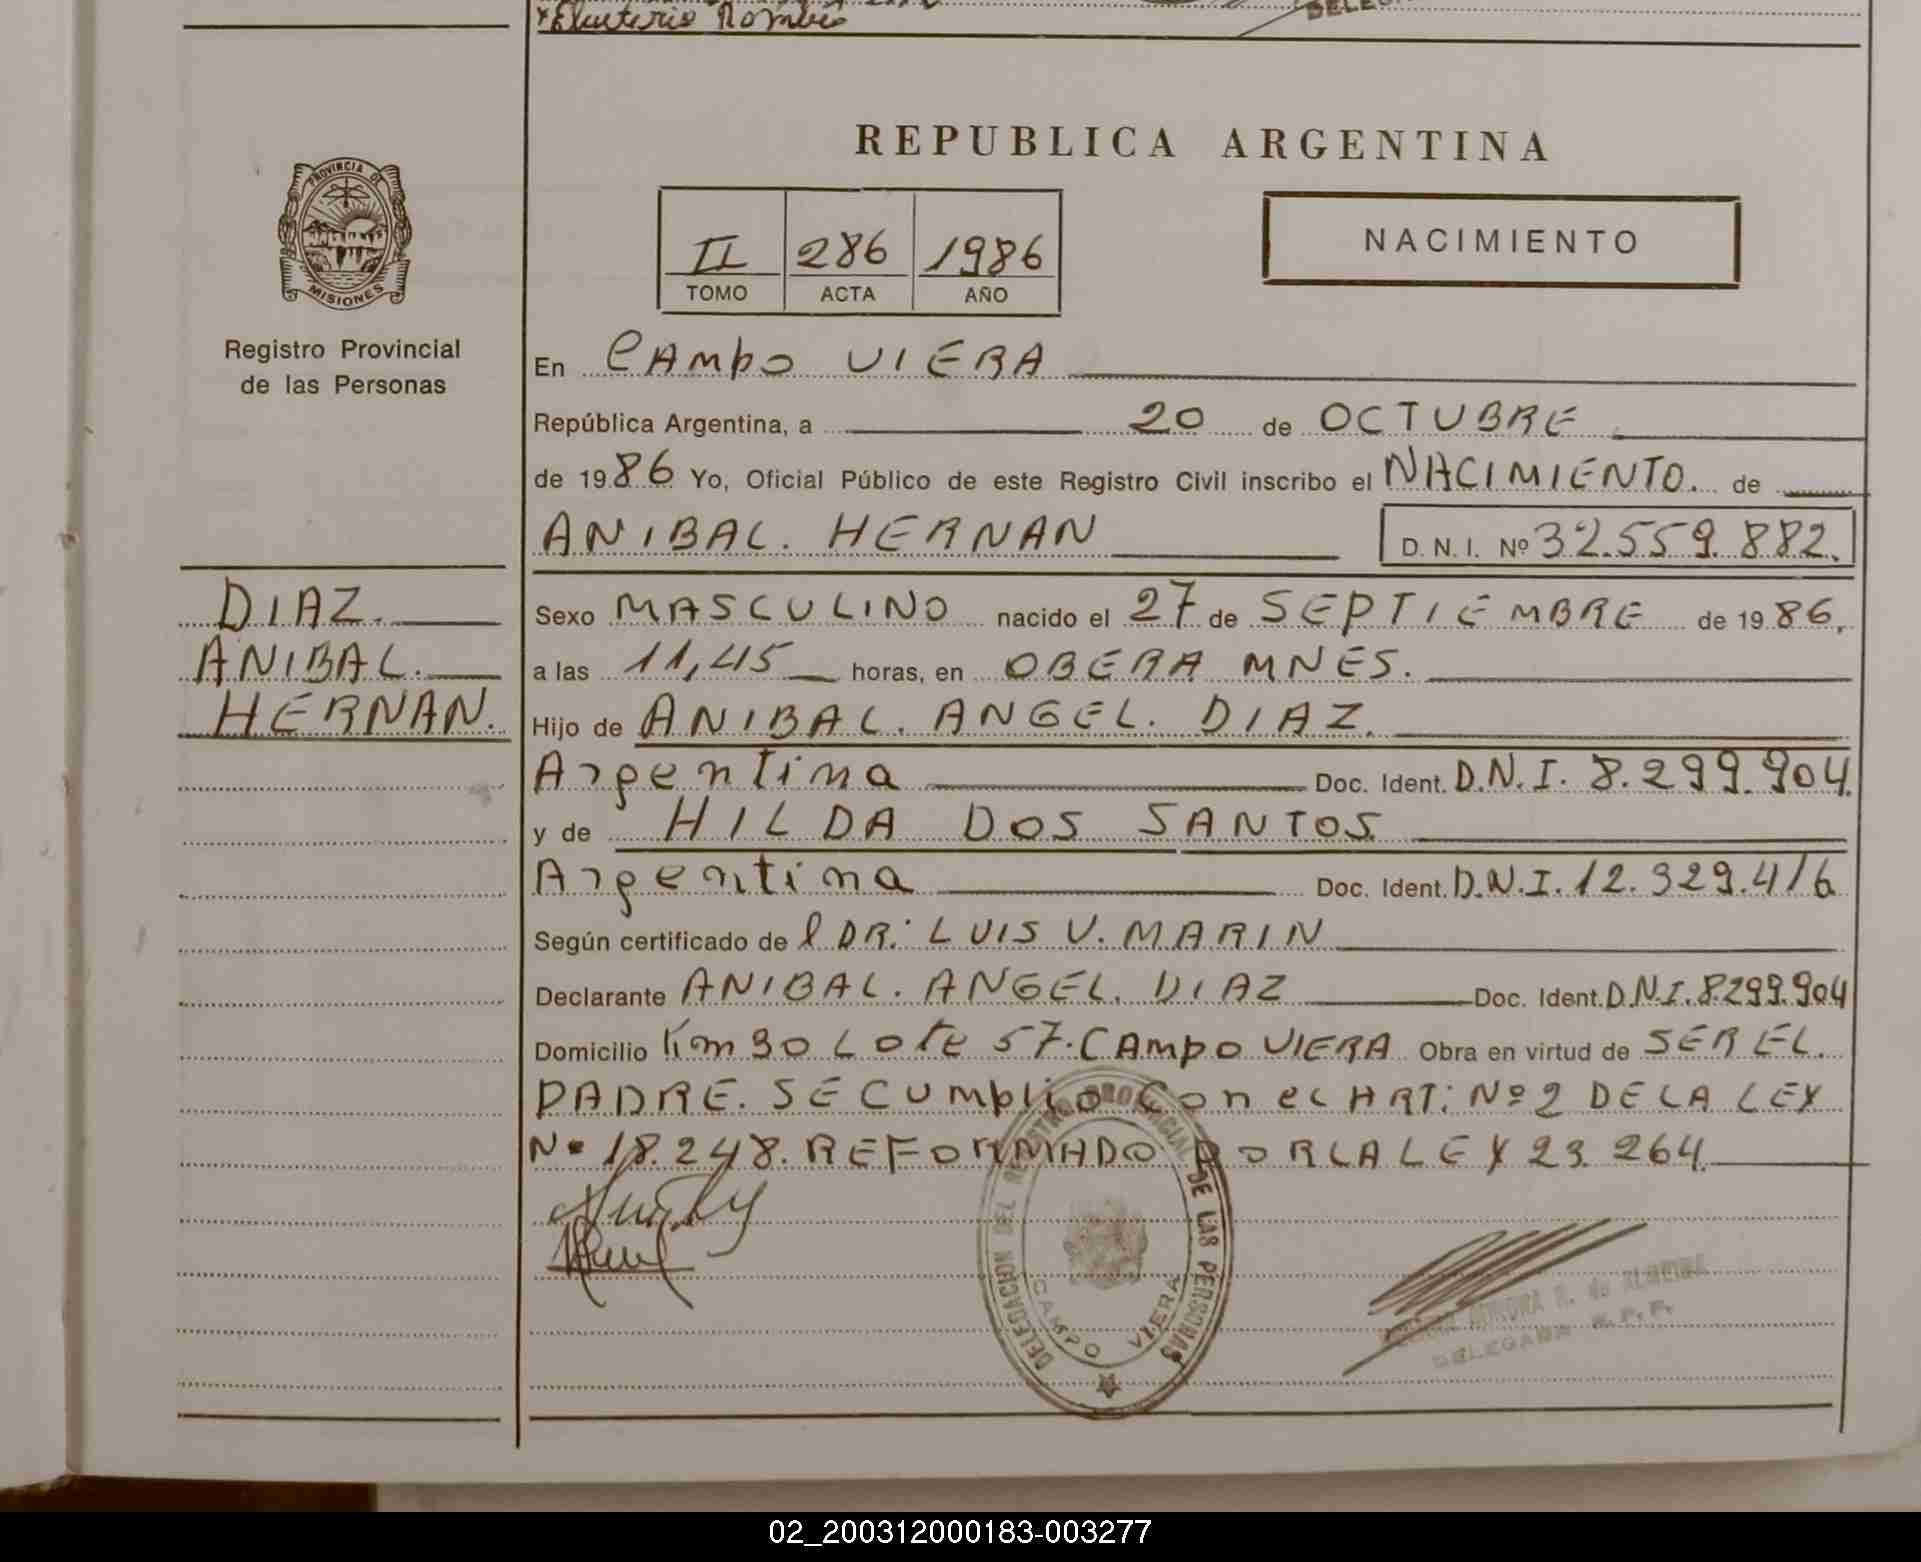 Eleuterio Romero
REPUBLICA ARGENTINA
PROVINCIA DE
MISIONES
II 286 1986
TOMO ACTA AÑO
NACIMIENTO
Registro Provincial
de las Personas
En CAmpo VIERA
República Argentina, a 20 de OCTUBRE
de 1986 Yo, Oficial Público de este Registro Civil inscribo el NACIMIENTO. de
ANIBAL. HERNAN D. N. I. Nº 32.559.882.
DIAZ.
ANIBAL.
HERNAN.
Sexo MASCULINO nacido el 27 de SEPTIEMBRE de 1986,
a las 11,45 horas, en OBERA MNES.
Hijo de ANIBAL. ANGEL. DIAZ.
Argentina Doc. Ident. D.N.I. 8.299.904.
y de HILDA DOS SANTOS
Argentina Doc. Ident. D.N.I. 12.329.416
Según certificado de l DR: LUIS V. MARIN
Declarante ANIBAL. ANGEL. DIAZ Doc. Ident. D.N.I. 8.299.904
Domicilio Km 30 Lote 57. CAmpo VIERA Obra en virtud de SER EL.
PADRE. SE CUmplio Con eL ART: Nº 2 DE LA LEY
Nº 18.248. REFORMADO POR LA LEY 23.264.
DELEGACION DEL REGISTRO PROVINCIAL DE LAS PERSONAS
CAMPO VIERA
R. de ALMEIDA
DELEGADA R. P. P.
02_200312000183-003277